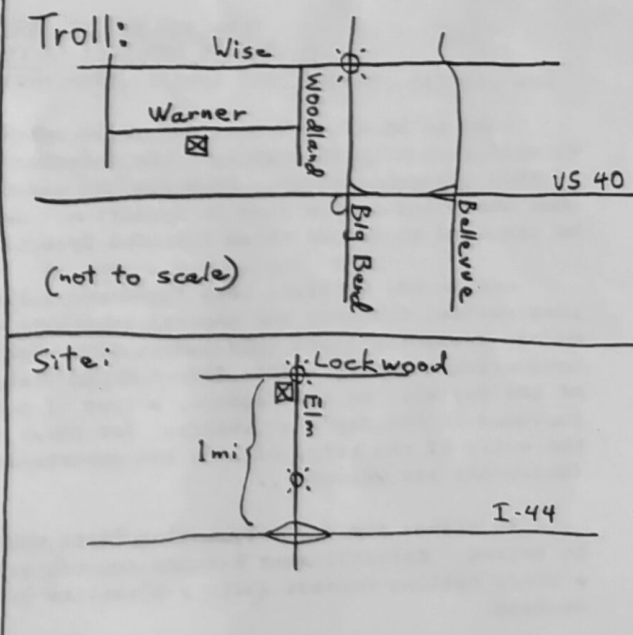 Troll:
Wise
Warner
Woodland
US 40
Big Bend
Bellevue
(not to scale)
Site:
Lockwood
Elm
1mi
I-44